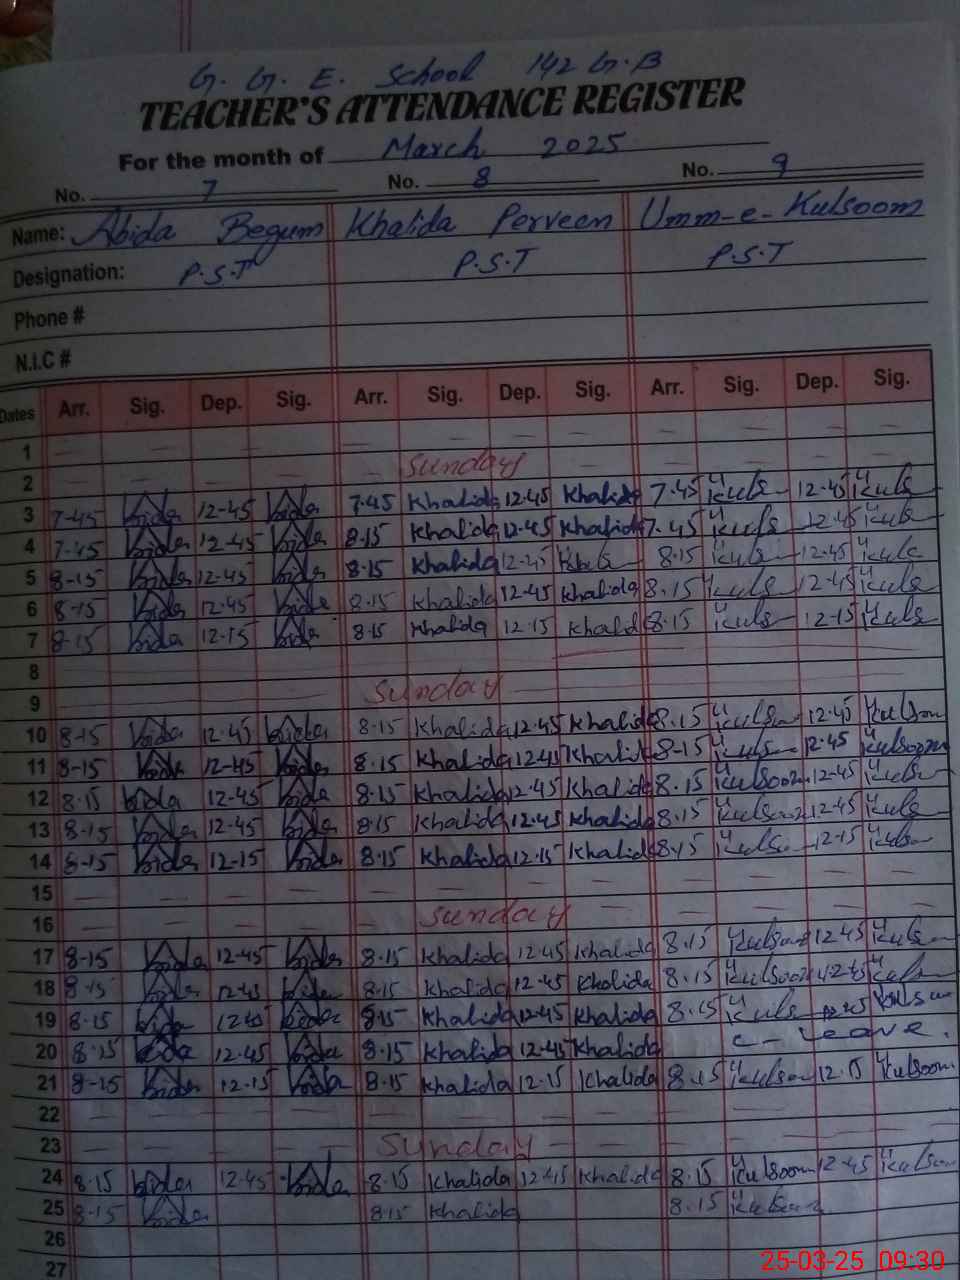 G. G. E. School 142 G.B
TEACHER'S ATTENDANCE REGISTER
For the month of March 2025
No. 7 No. 8 No. 9
Name: Abida Begum Khalida Perveen Umm-e-Kulsoom
Designation: P.S.T P.S.T P.S.T
Phone #
N.I.C #
Dates Arr. Sig. Dep. Sig. Arr. Sig. Dep. Sig. Arr. Sig. Dep. Sig.
1
2 Sunday
3 7-45 12-45 7-45 Khalida 12-45 Khalida 7-45 Kuls 12-45 Kuls
4 7-45 12-45 8-15 Khalida 12-45 Khalida 7-45 Kuls 12-45 Kuls
5 8-15 12-45 8-15 Khalida 12-45 8-15 Kuls 12-45 Kuls
6 8-15 12-45 8-15 Khalida 12-45 Khalida 8-15 Kuls 12-45 Kuls
7 8-15 12-15 8-15 Khalida 12-15 Khalid 8-15 Kuls 12-15 Kuls
8
9 Sunday
10 8-15 12-45 8-15 Khalida 12-45 Khalida 8-15 Kulsoom 12-45 Kulsoom
11 8-15 12-45 8-15 Khalida 12-45 Khalida 8-15 Kuls 12-45 Kulsoom
12 8-15 12-45 8-15 Khalida 12-45 Khalida 8-15 Kulsoom 12-45 Kuls
13 8-15 12-45 8-15 Khalida 12-45 Khalida 8-15 Kulsoom 12-45 Kuls
14 8-15 12-15 8-15 Khalida 12-15 Khalida 8-15 Kulsoom 12-15 Kuls
15
16 Sunday
17 8-15 12-45 8-15 Khalida 12-45 Khalida 8-15 Kulsoom 12-45 Kuls
18 8-15 12-45 8-15 Khalida 12-45 Khalida 8-15 Kulsoom 12-45 Kuls
19 8-15 12-45 8-15 Khalida 12-45 Khalida 8-15 Kuls
20 8-15 12-45 8-15 Khalida 12-45 Khalida c-Leave.
21 8-15 12-15 8-15 Khalida 12-15 Khalida 8-15 Kulsoom 12-15 Kulsoom
22
23 Sunday
24 8-15 12-45 8-15 Khalida 12-45 Khalida 8-15 Kulsoom 12-45 Kulsoom
25 8-15 8-15 Khalida 8-15 Kulsoom
26
27
25-03-25 09:30